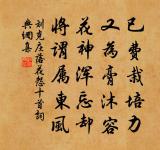 已費栽培力
又為膏沐容
花神渾忘却
將謂属東風
刘克庄落花怨十首詞
典網書